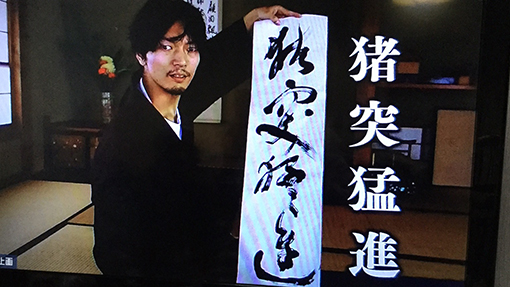 猪突猛進
猪突猛進